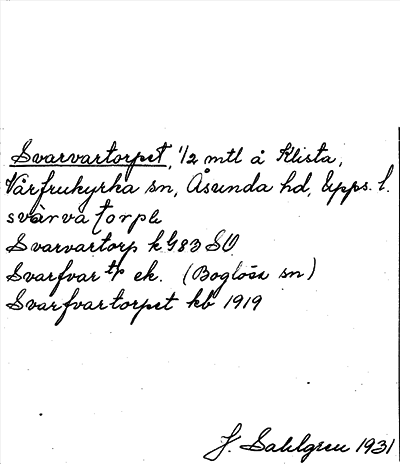 Svarvartorpet, 1/2 mtl å Klista,
Vårfrukyrka sn, Åsunda hd, Upps. l.
svàrva torpe
Svarvartorp k G83 SO
Svarfvar tp ek. (Boglösa sn)
Svarfvartorpet kb 1919
J. Sahlgren 1931